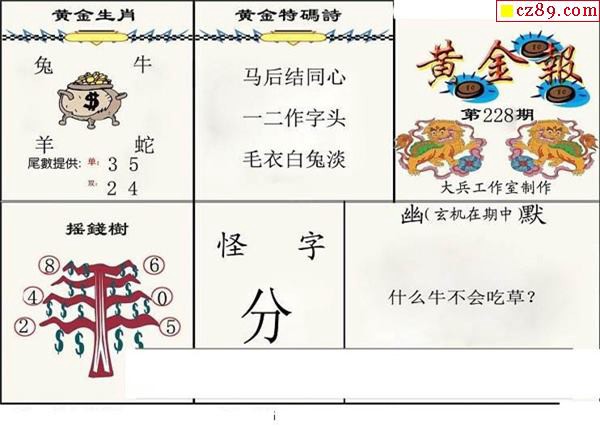 cz89.com
黄金生肖
兔 牛
羊 蛇
尾數提供: 单: 3 5
双: 2 4
黄金特碼詩
马后结同心
一二作字头
毛衣白兔淡
黄金報
第228期
大兵工作室制作
摇錢樹
8 6
4 0
2 5
怪 字
分
幽(玄机在期中)默
什么牛不会吃草?
i